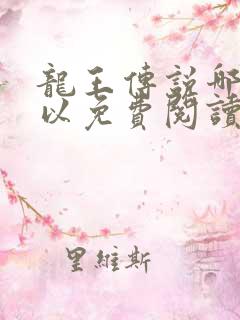 龍王傳説哪
以免費閱讀
里維斯